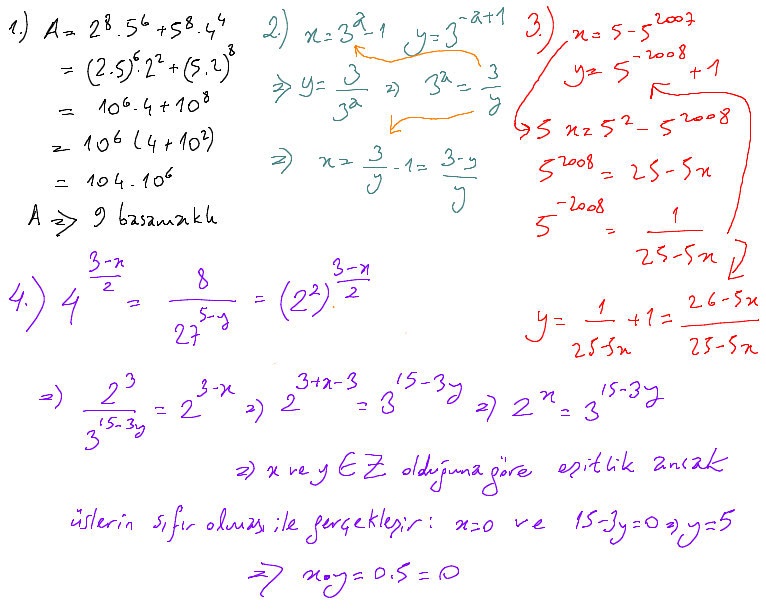 1.) A = 2⁸.5⁶ + 5⁸.4⁴
= (2.5)⁶.2² + (5.2)⁸
= 10⁶.4 + 10⁸
= 10⁶ (4 + 10²)
= 104.10⁶
A => 9 basamaklı
2.) x = 3ᵃ - 1 y = 3⁻ᵃ⁺¹
=> y = 3/3ᵃ => 3ᵃ = 3/y
=> x = 3/y - 1 = (3-y)/y
3.) x = 5 - 5²⁰⁰⁷
y = 5⁻²⁰⁰⁸ + 1
5x = 5² - 5²⁰⁰⁸
5²⁰⁰⁸ = 25 - 5x
5⁻²⁰⁰⁸ = 1/(25-5x)
y = 1/(25-5x) + 1 = (26-5x)/(25-5x)
4.) 4^((3-x)/2) = 8/27^(5-y) = (2²)^((3-x)/2)
=> 2³/3^(15-3y) = 2^(3-x) => 2^(3+x-3) = 3^(15-3y) => 2^x = 3^(15-3y)
=> x ve y ∈ Z olduğuna göre eşitlik ancak
üslerin sıfır olması ile gerçekleşir: x=0 ve 15-3y=0 => y=5
=> x.y = 0.5 = 0